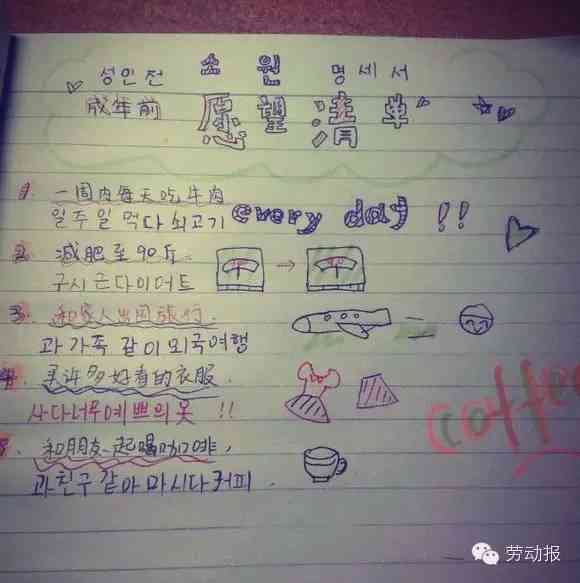 성인전 소원 명세서
成年前 愿望清单
1. 一周内每天吃牛肉
일주일 먹다 쇠고기 every day !!
2. 减肥至90斤
구시근다이어트
3. 和家人出国旅行.
과 가족 같이 외국여행
4. 买许多好看的衣服.
사다너무예쁘의옷 !!
5. 和朋友一起喝咖啡,
coffee
과친구 같아 마시다 커피.
劳动报